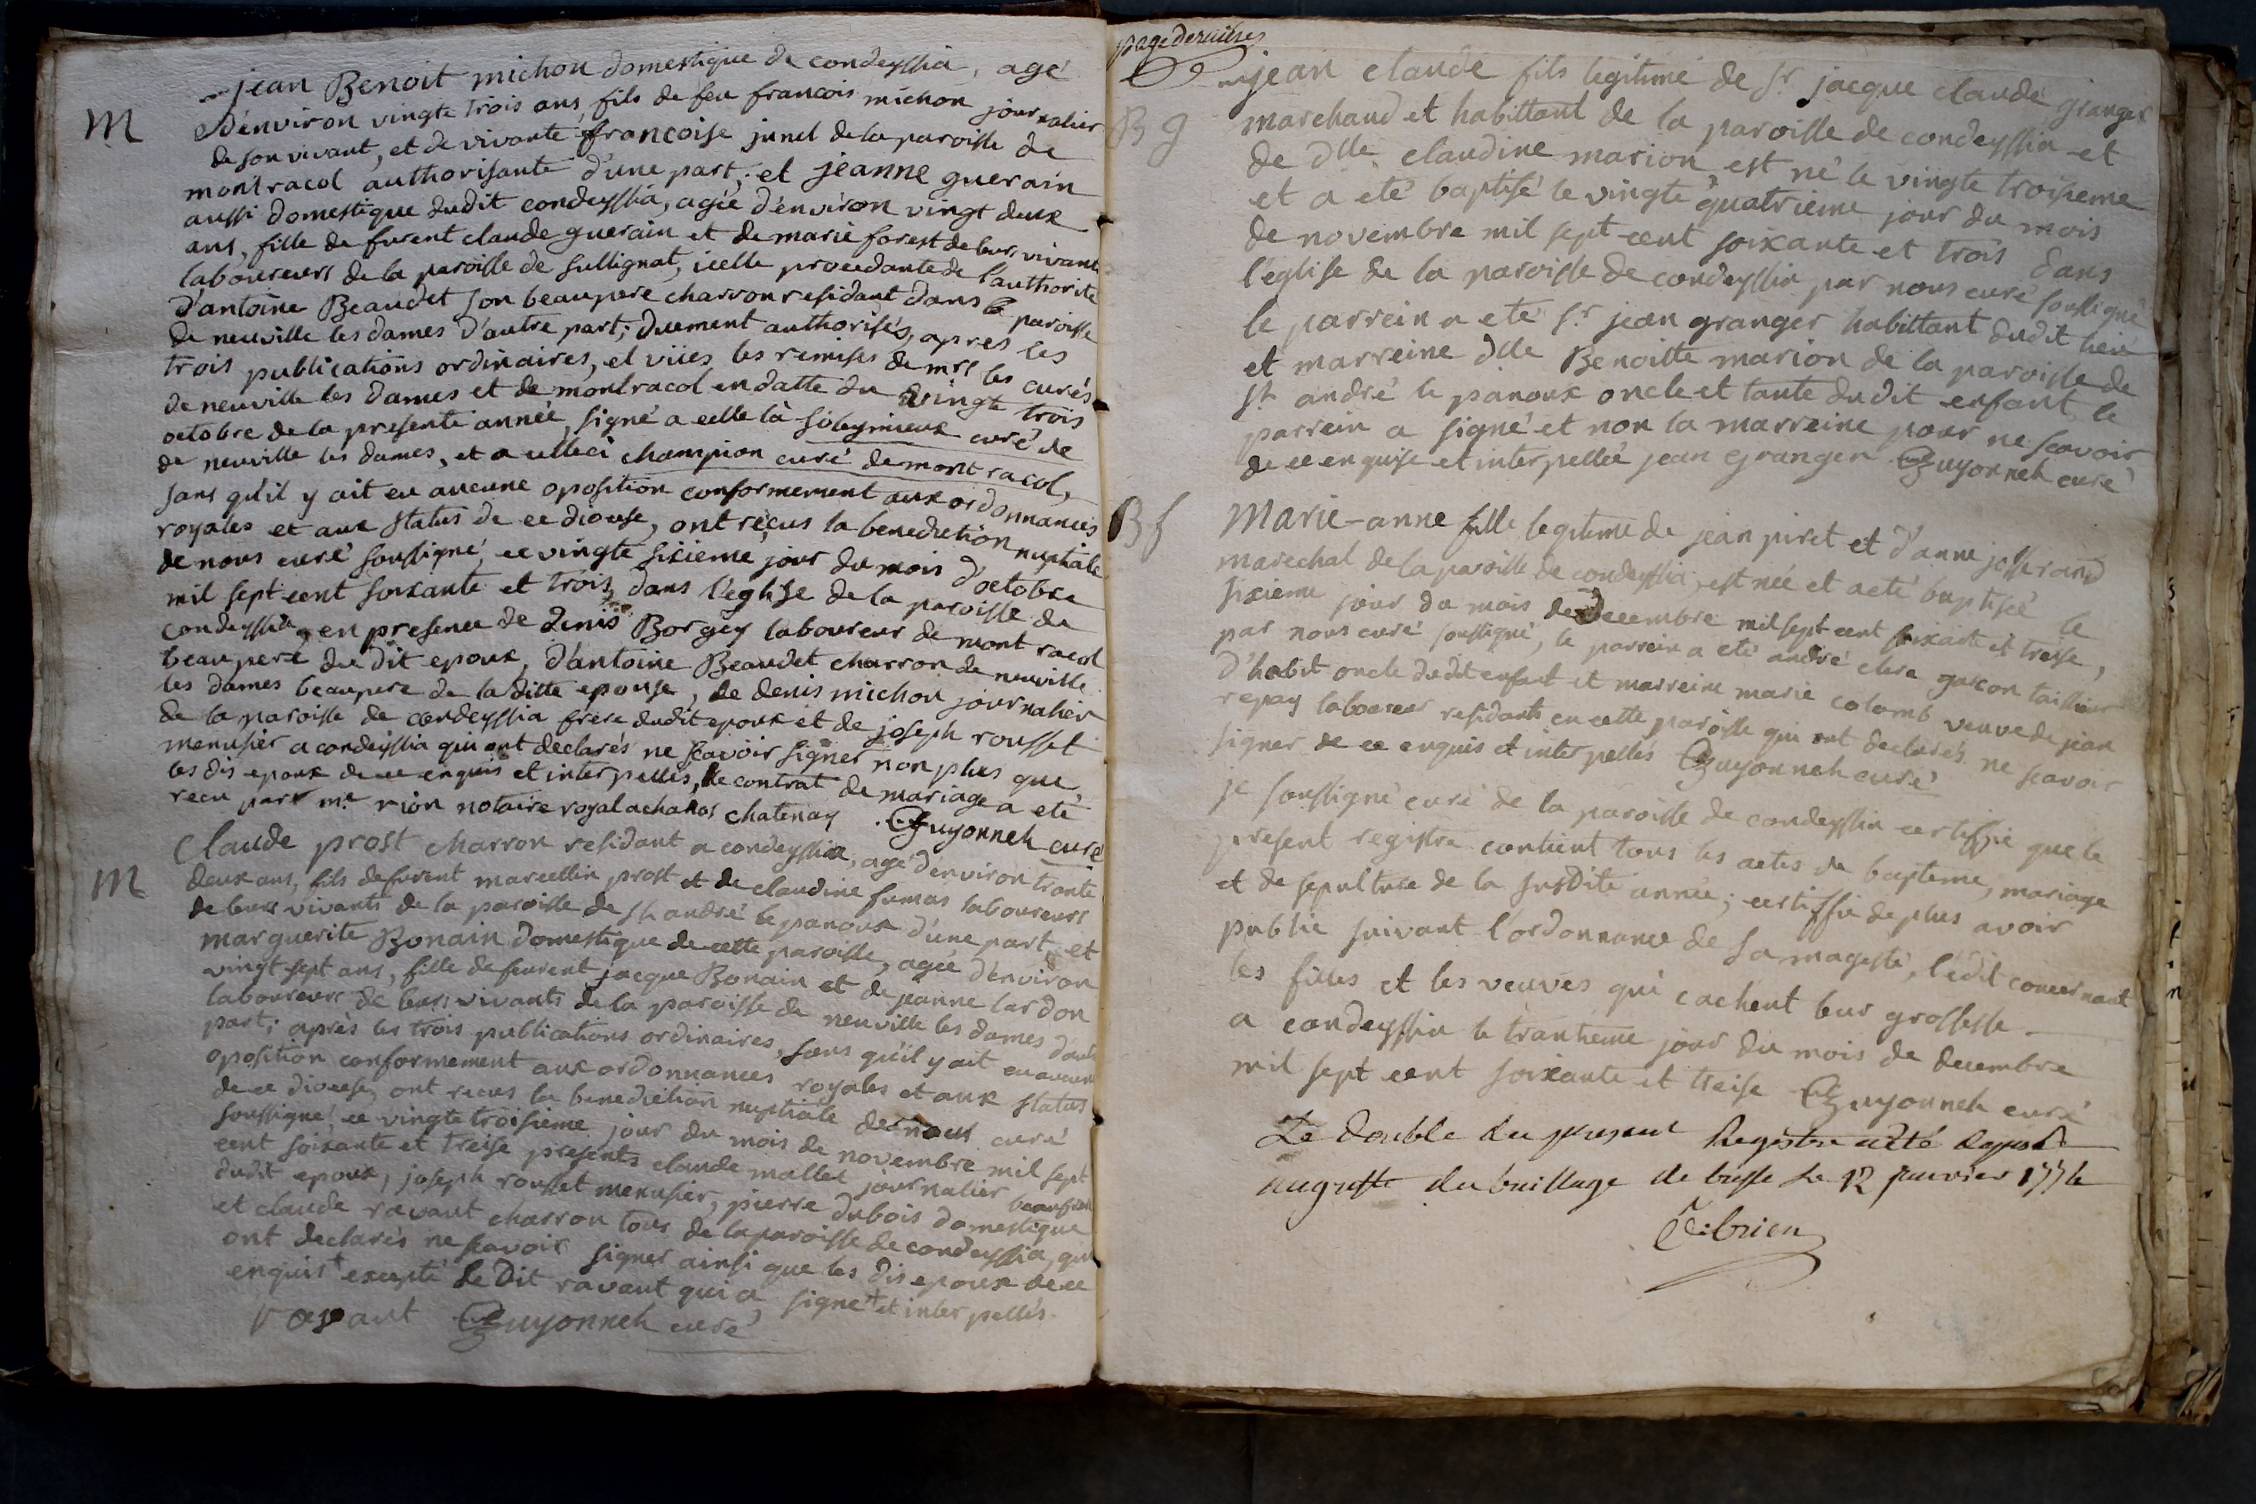 M
jean Benoit michon domestique de condeyssia, agé
d'environ vingte trois ans, fils de feu francois michon journalier
de son vivant, et de vivante francoise junel de la paroisse de
montracol authorisante d'une part; et jeanne guerain
aussi domestique dudit condeyssia, agée d'environ vingt deux
ans, fille de furent claude guerain et de marie forest de leurs vivants
laboureurs de la paroisse de sullignat, icelle procedante de l'authorité
d'antoine Beaudet son beaupere charron residant dans la paroisse
de neuville les dames d'autre part; duement authorisés, apres les
trois publications ordinaires, et vües les remises de mrs les curés
de neuville les dames et de montracol en datte du vingte trois
octobre de la presente année, signé a celle là curé de
de neuville les dames, et a celleci champion curé de montracol,
sans qu'il y ait eu aucune oposition conformement aux ordonnances
royales et aux status de ce diocese, ont reçus la benediction nuptiale
de nous curé soussigné, ce vingte sixieme jour du mois d'octobre
mil sept cent soixante et trois, dans l'eglise de la paroisse de
condeyssia, en presence de denis Borgey laboureur de montracol
beaupere du dit epoux, d'antoine Beaudet charron de neuville
les dames beaupere de la ditte epouse, de denis michon journalier
de la paroisse de condeyssia frere dudit epoux et de joseph rousset
menusier a condeyssia qui ont declarés ne scavoir signer non plus que
les dis epoux de ce enquis et interpellés, le contrat de mariage a eté
recu par me rion notaire royal a chatenay . Guyonneh curé
M
Claude prost charron residant a condeyssia, agé d'environ trante
deux ans, fils de furent marcellin prost et de claudine fumas laboureurs
de leurs vivants de la paroisse de st andré le panoux d'une part, et
marguerite Bonain domestique de cette paroisse, agée d'environ
vingt sept ans, fille de feurent jacque Bonain et de jeanne lardon
laboureurs de leurs vivants de la paroisse de neuville les dames d'autre
part; après les trois publications ordinaires, sans qu'il y ait eu aucune
oposition conformement aux ordonnances royales et aux status
de ce diocese, ont recus la benediction nuptiale de nous curé
soussigné, ce vingte troisieme jour du mois de novembre mil sept
cent soixante et treise presents claude mallet journalier beaufrere
dudit epoux, joseph rousset menusier, pierre dubois domestique
et claude ravaut charron tous de la paroisse de condeyssia, qui
ont declarés ne scavoir signer ainsi que les dis epoux de ce
enquis + excepté le dit ravaut qui a signé + et interpellés.
ravaut Guyonneh curé
page derniere
B g
jean claude fils legitime de sr jacque claude granger
marchand et habittant de la paroisse de condeyssia et
de dlle claudine marion, est né le vingte troisieme
et a eté baptisé le vingte quatrieme jour du mois
de novembre mil sept cent soixante et trois dans
l'eglise de la paroisse de condeyssia par nous curé soussigné
le parrein a eté sr jean granger habittant dudit lieu
et marreine dlle Benoitte marion de la paroisse de
st andré le panoux oncle et tante dudit enfant, le
parrein a signé et non la marreine pour ne scavoir
de ce enquise et interpellée jean Granger Guyonneh curé
B f
Marie-anne fille legitime de jean piret et d'anne josserand
marechal de la paroisse de condeyssia, est née et a eté baptisée le
sixieme jour du mois de Decembre mil sept cent soixante et treise,
par nous curé soussigné, le parrein a eté andré clere garcon taillieur
d'habit oncle dudit enfant et marreine marie colomb veuve de jean
repay laboureur residants en cette paroisse qui ont declarés ne scavoir
signer de ce enquis et interpellés Guyonneh curé
je soussigné curé de la paroisse de condeyssia certiffie que le
present registre contient tous les actes de bapteme, mariage
et de sepulture de la susdite année; certiffie de plus avoir
publié suivant l'ordonnance de sa magesté, l'édit concernant
les filles et les veuves qui cachent leur grossesse
a condeyssia le trantieme jour du mois de decembre
mil sept cent soixante et treise Guyonneh curé
Le double du present Registre a eté deposé
au greffe du bailliage de bresse le 12 janvier 1774